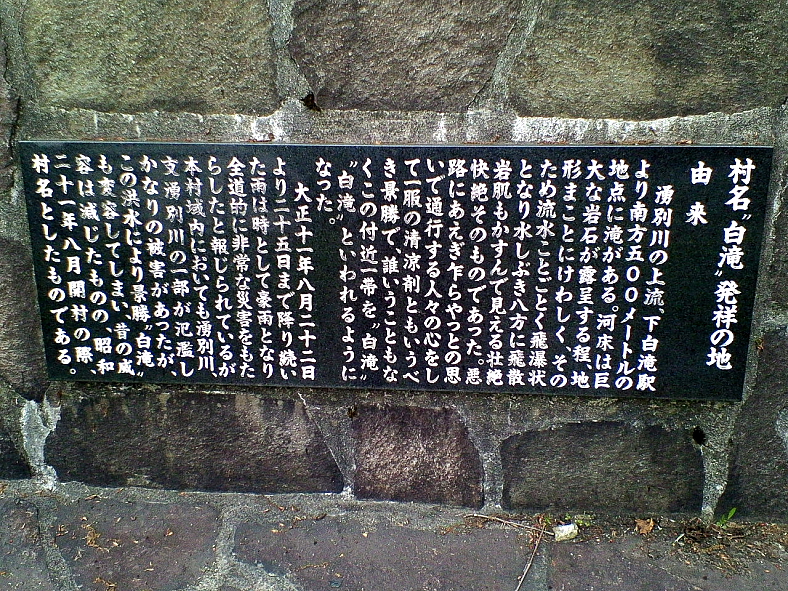 村名〝白滝〟発祥の地
由来
湧別川の上流、下白滝駅
より南方五〇〇メートルの
地点に滝がある。河床は巨
大な岩石が露呈する程、地
形まことにけわしく、その
ため流水ことごとく飛瀑状
となり水しぶき八方に飛散
岩肌もかすんで見える壮絶
快絶そのものであった。悪
路にあえぎ乍らやっとの思
いで通行する人々の心をし
て一服の清涼剤ともいうべ
き景勝で、誰いうこともな
くこの付近一帯を〝白滝〟
〝白滝〟といわれるように
なった。
大正十一年八月二十二日
より二十五日まで降り続い
た雨は時として豪雨となり
全道的に非常な災害をもた
らしたと報じられているが
本村域内においても湧別川、
支湧別川の一部が氾濫し
かなりの被害があったが、
この洪水により景勝〝白滝〟
も変容してしまい、昔の威
容は減じたものの、昭和
二十一年八月開村の際、
村名としたものである。